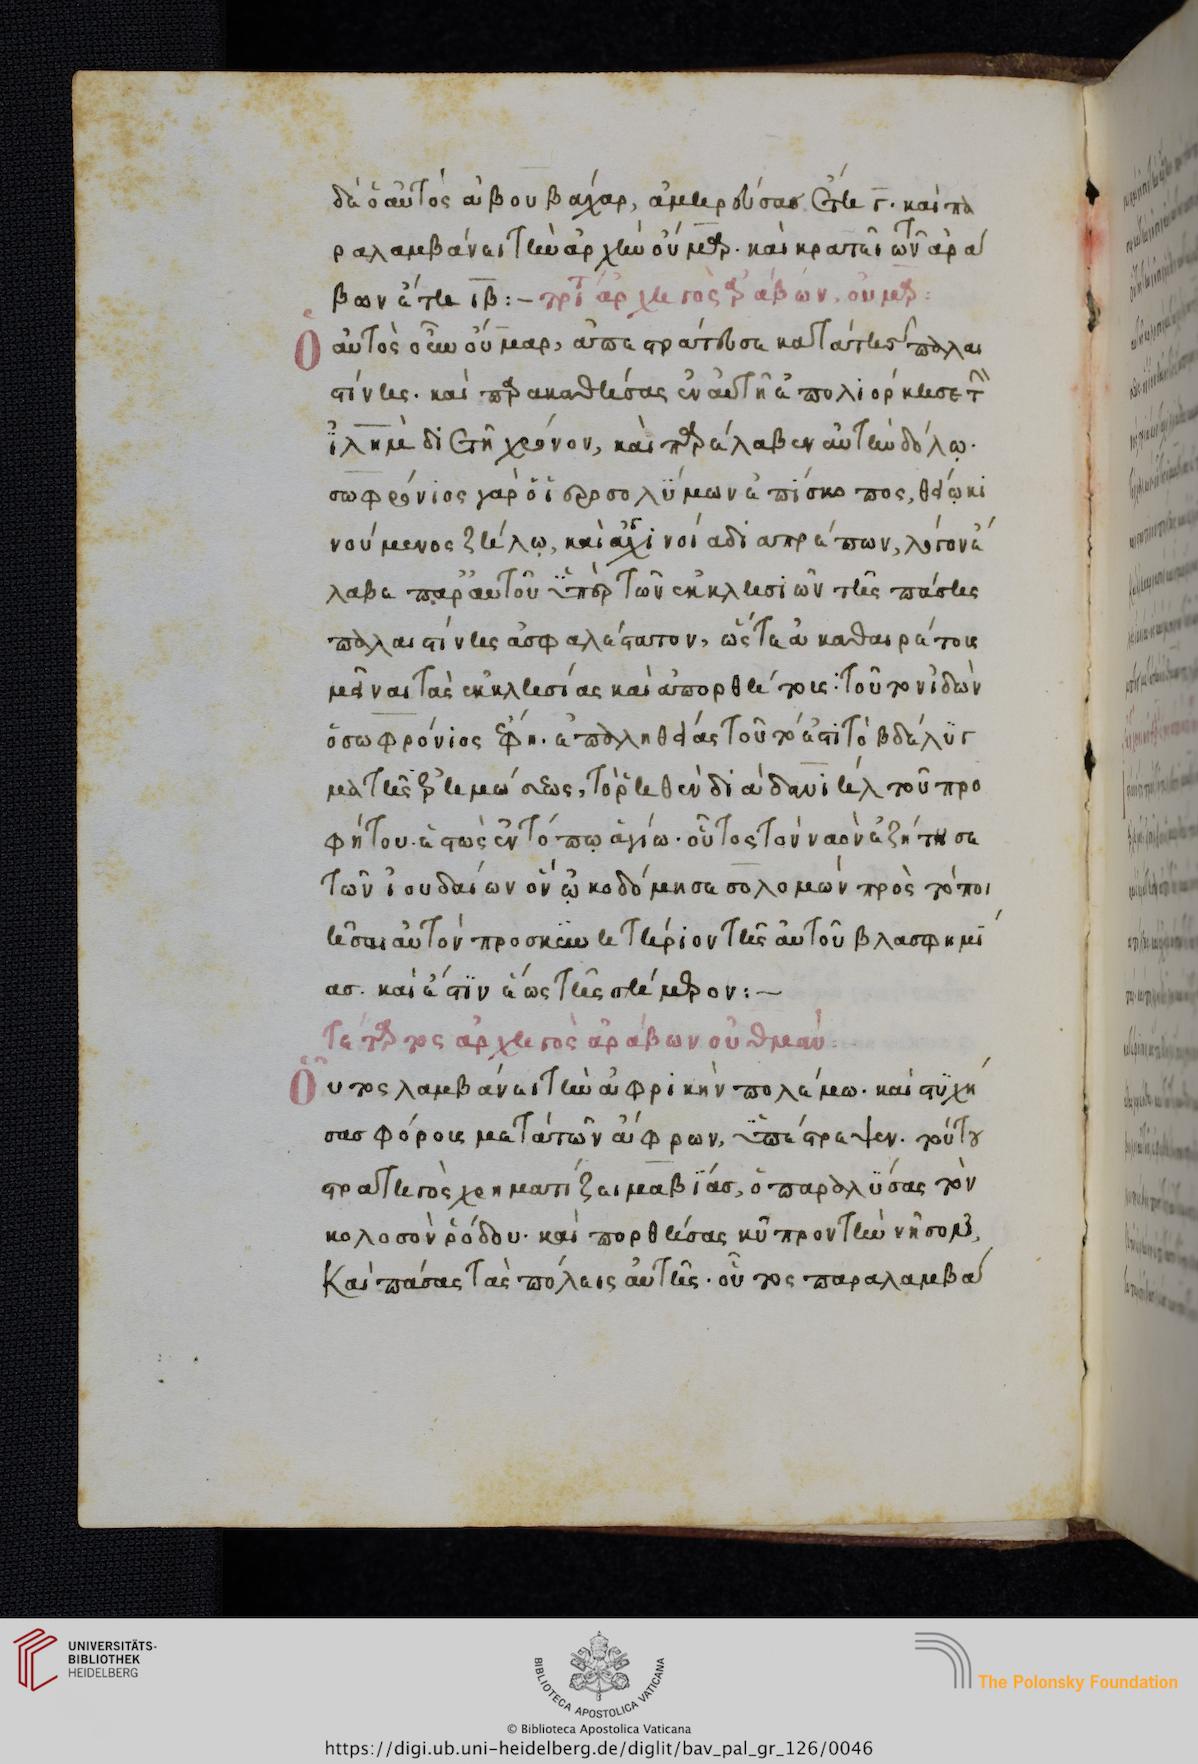 δὲ ὁ αὐτὸς ἀβουβαχαρ, ἀμηρεύσας ἔτη γ. καὶ πα
ραλαμβάνει τὴν ἀρχὴν οὐμαρ. καὶ κρατεῖ τῶν ἀρά
βων ἔτη ιβ :–
ἀρχηγὸς ἀράβων, οὐμαρ:
Ὁ αὐτὸς οὖν οὔμαρ, ἐπεστράτευσε κατὰ τῆς παλαι
στίνης. καὶ παρακαθήσας ἐν αὐτῆ ἐπολιόρκησε τὴν
ἱλὴμ διετῆ χρόνον, καὶ παρέλαβεν αὐτὴν δόλω.
σωφρόνιος γὰρ ὁ ἱεροσολύμων ἐπίσκοπος, θείω κι
νούμενος ζήλω, καὶ ἀγχινοία διαπρέπων, λόγον ἔ
λαβε παρ' αὐτοῦ ὑπὲρ τῶν ἐκκλησιῶν τῆς πάσης
παλαιστίνης ἀσφαλέστατον, ὥστε ἀκαθαιρέτους
μεῖναι τὰς ἐκκλησίας καὶ ἀπορθήτους. τοῦτον ἰδὼν
ὁ σωφρόνιος ἔφη. ἐπ' ἀληθείας τοῦτό ἐστι τὸ βδέλυγ
μα τῆς ἐρημώσεως, τὸ ῥηθὲν διὰ δανιὴλ τοῦ προ
φήτου. ἑστὼς ἐν τόπω ἁγίω. οὗτος τὸν ναὸν ἐζήτησε
τῶν ἰουδαίων ὃν ὠκοδόμησε σολομών πρὸς τὸ ποι
ῆσαι αὐτὸν προσκυνητήριον τῆς αὐτοῦ βλασφημί
ας. καὶ ἔστιν ἕως τῆς σήμερον :–
Τέταρτος ἀρχηγὸς ἀράβων οὐθμάν:
Οὗτος λαμβάνει τὴν ἀφρικὴν πολέμω. καὶ στυχή
σας φόρους μετὰ τῶν ἄφρων, ὑπέστρεψεν. τούτου
στρατηγὸς χρηματίζει μαβίας, ὁ παραλύσας τὸν
κολοσὸν ῥόδου. καὶ πορθήσας κύπρον τὴν νῆσον,
Καὶ πάσας τὰς πόλεις αὐτῆς. οὗτος παραλαμβά
UNIVERSITÄTS-
BIBLIOTHEK
HEIDELBERG
BIBLIOTECA APOSTOLICA VATICANA
The Polonsky Foundation
© Biblioteca Apostolica Vaticana
https://digi.ub.uni-heidelberg.de/diglit/bav_pal_gr_126/0046